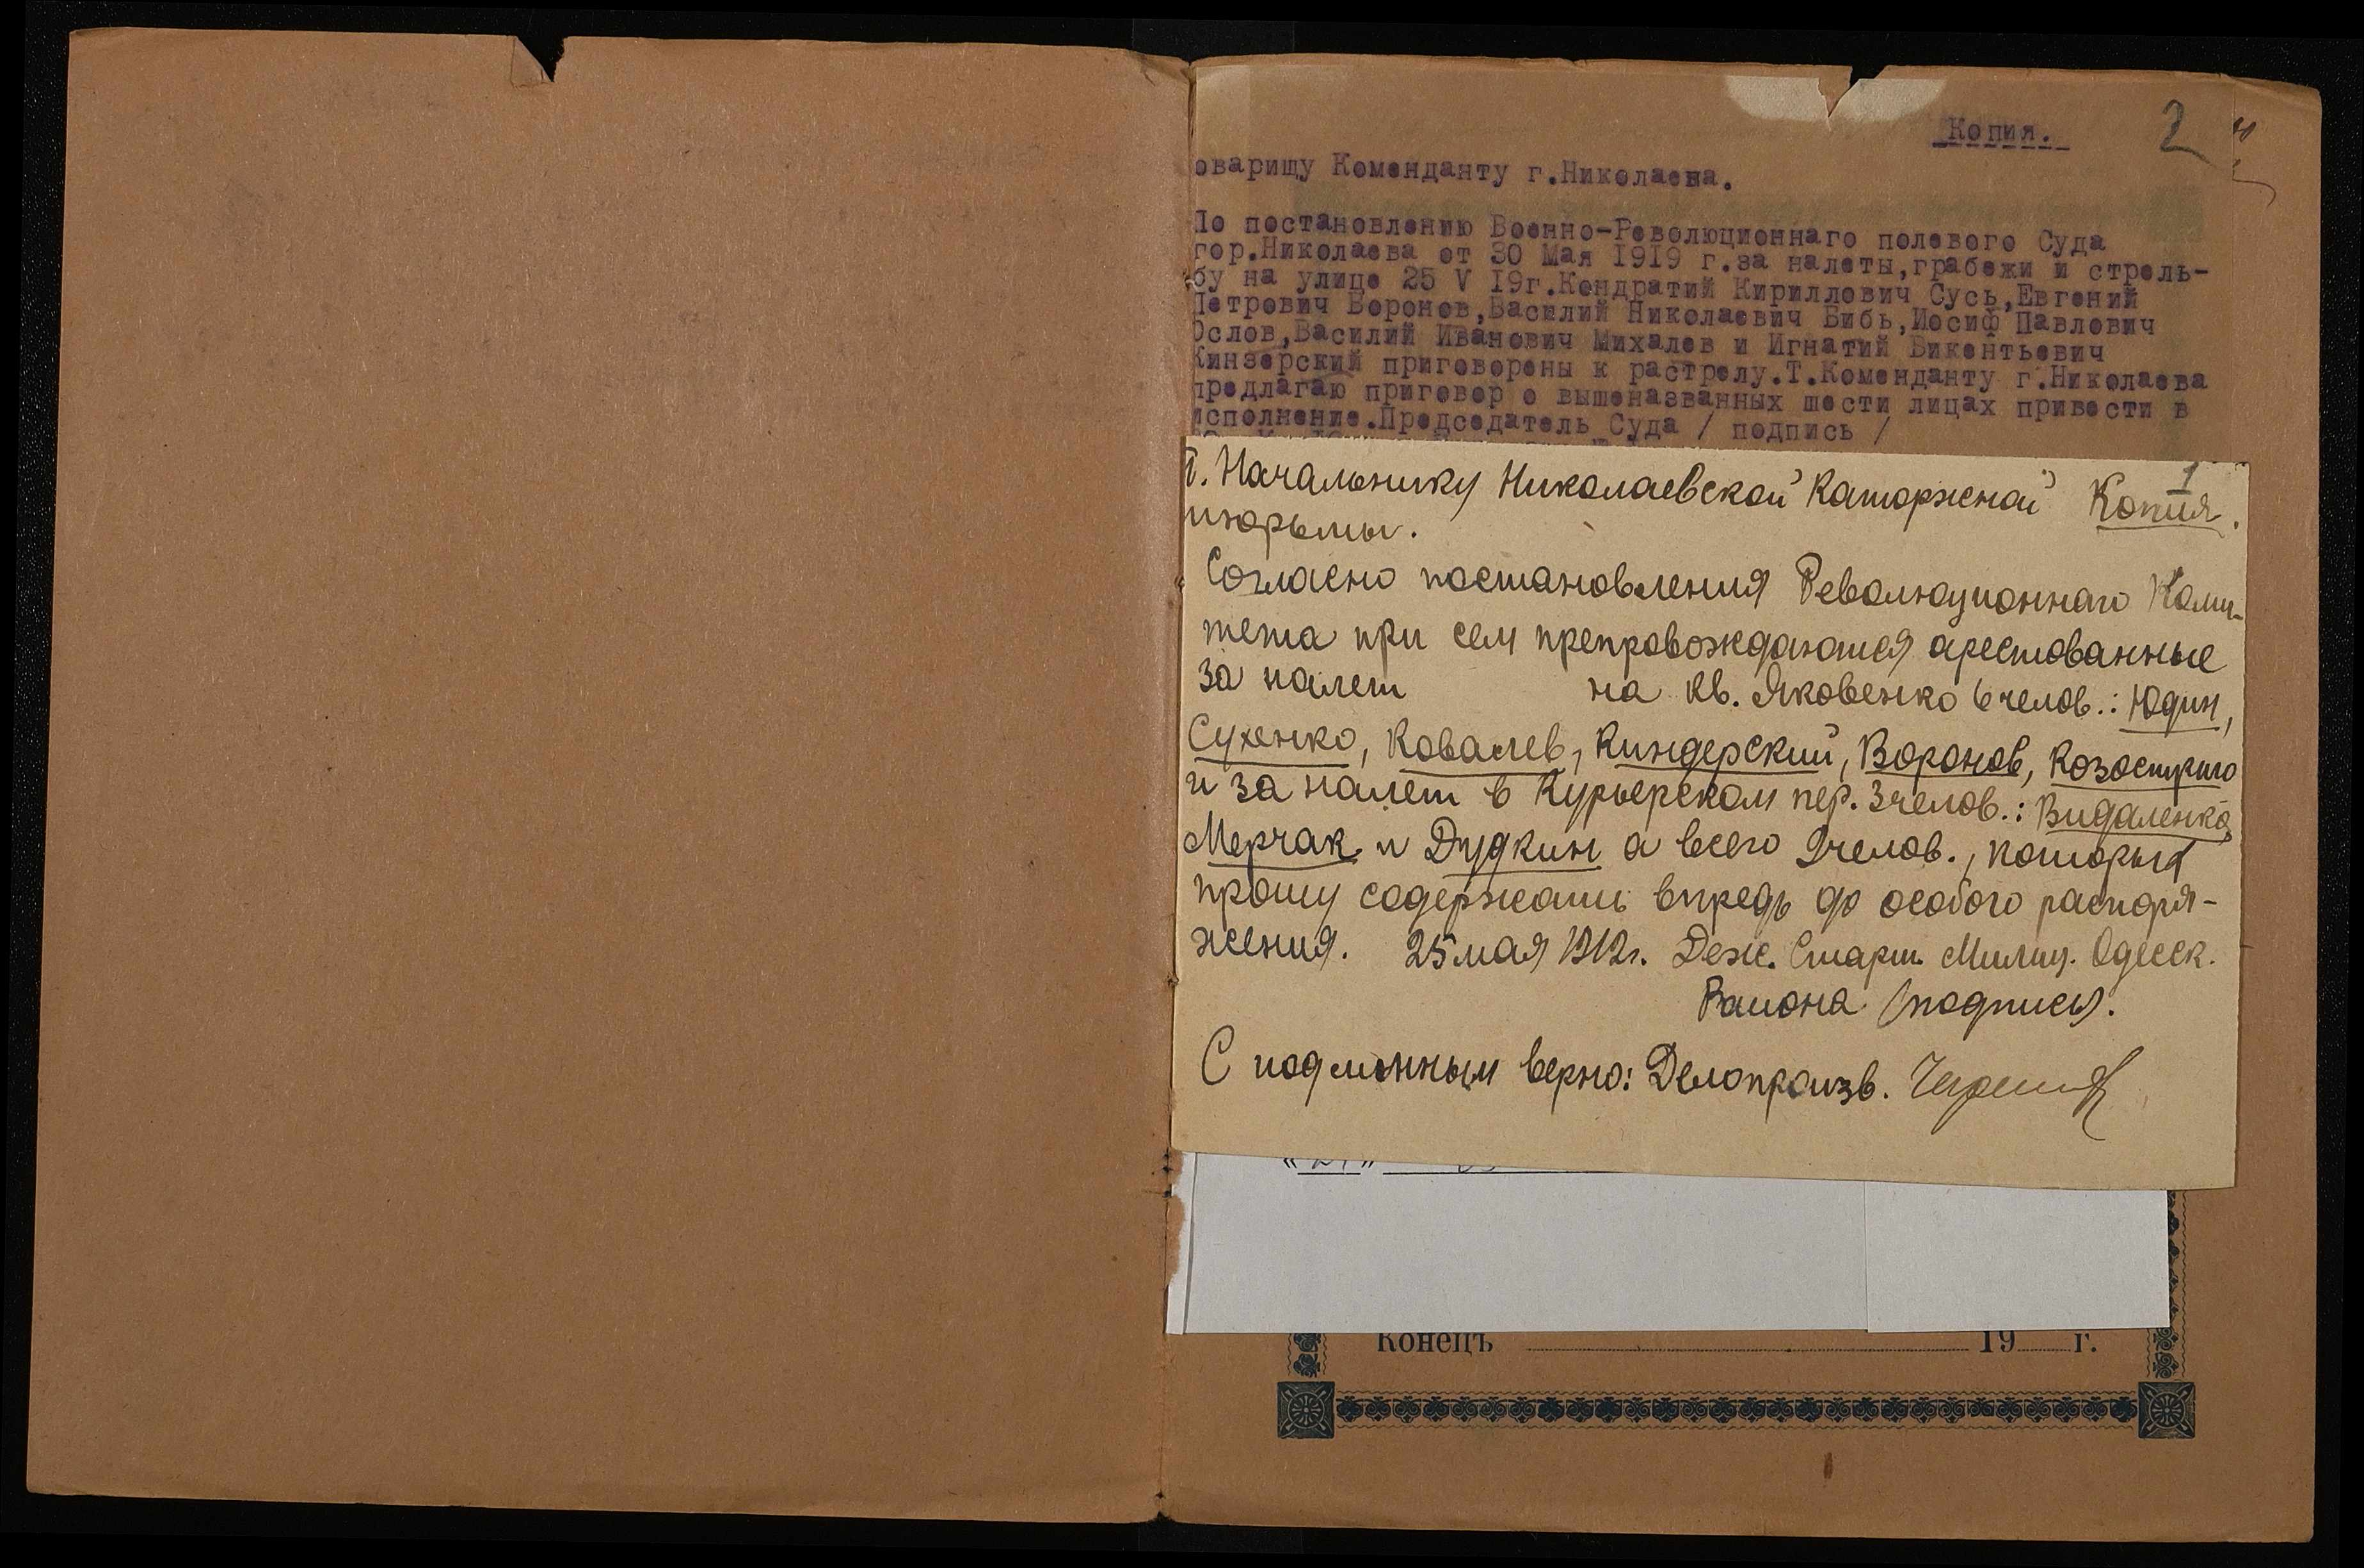 Копия.
2
оварищу Коменданту г.Николаева.
По постановлению Военно-Революционнаго полевого Суда
гор.Николаева от 30 Мая 1919 г.за налеты,грабежи и стрель-
бу на улице 25 V 19г.Кондратий Кириллович Сусь,Евгений
Петрович Воронов,Василий Николаевич Бибь,Иосиф Павлович
Ослов,Василий Иванович Михалев и Игнатий Викентьевич
Кинзерский приговорены к растрелу.Т.Коменданту г.Николаева
предлагаю приговор о вышеназванных шести лицах привести в
исполнение.Председатель Суда / подпись /
1
Т. Начальнику Николаевской Каторжной Копия.
тюрьмы.
Согласно постановления Революционнаго Коми-
тета при сем препровождаются арестованные
за налет на кв. Яковенко 6 челов.: Юдин,
Сухенко, Ковалев, Киндерский, Воронов,
и за налет в Курьерском пер. 3 челов.: Видаленко,
Мерчак и Дудкин а всего 9 челов., которых
прошу содержать впредь до особого распоря-
жения. 25 мая 1919г. Деж. Старш. Милиц. Одесск.
Района (подпись).
С подлинным верно: Делопроизв.
Конецъ 19 г.